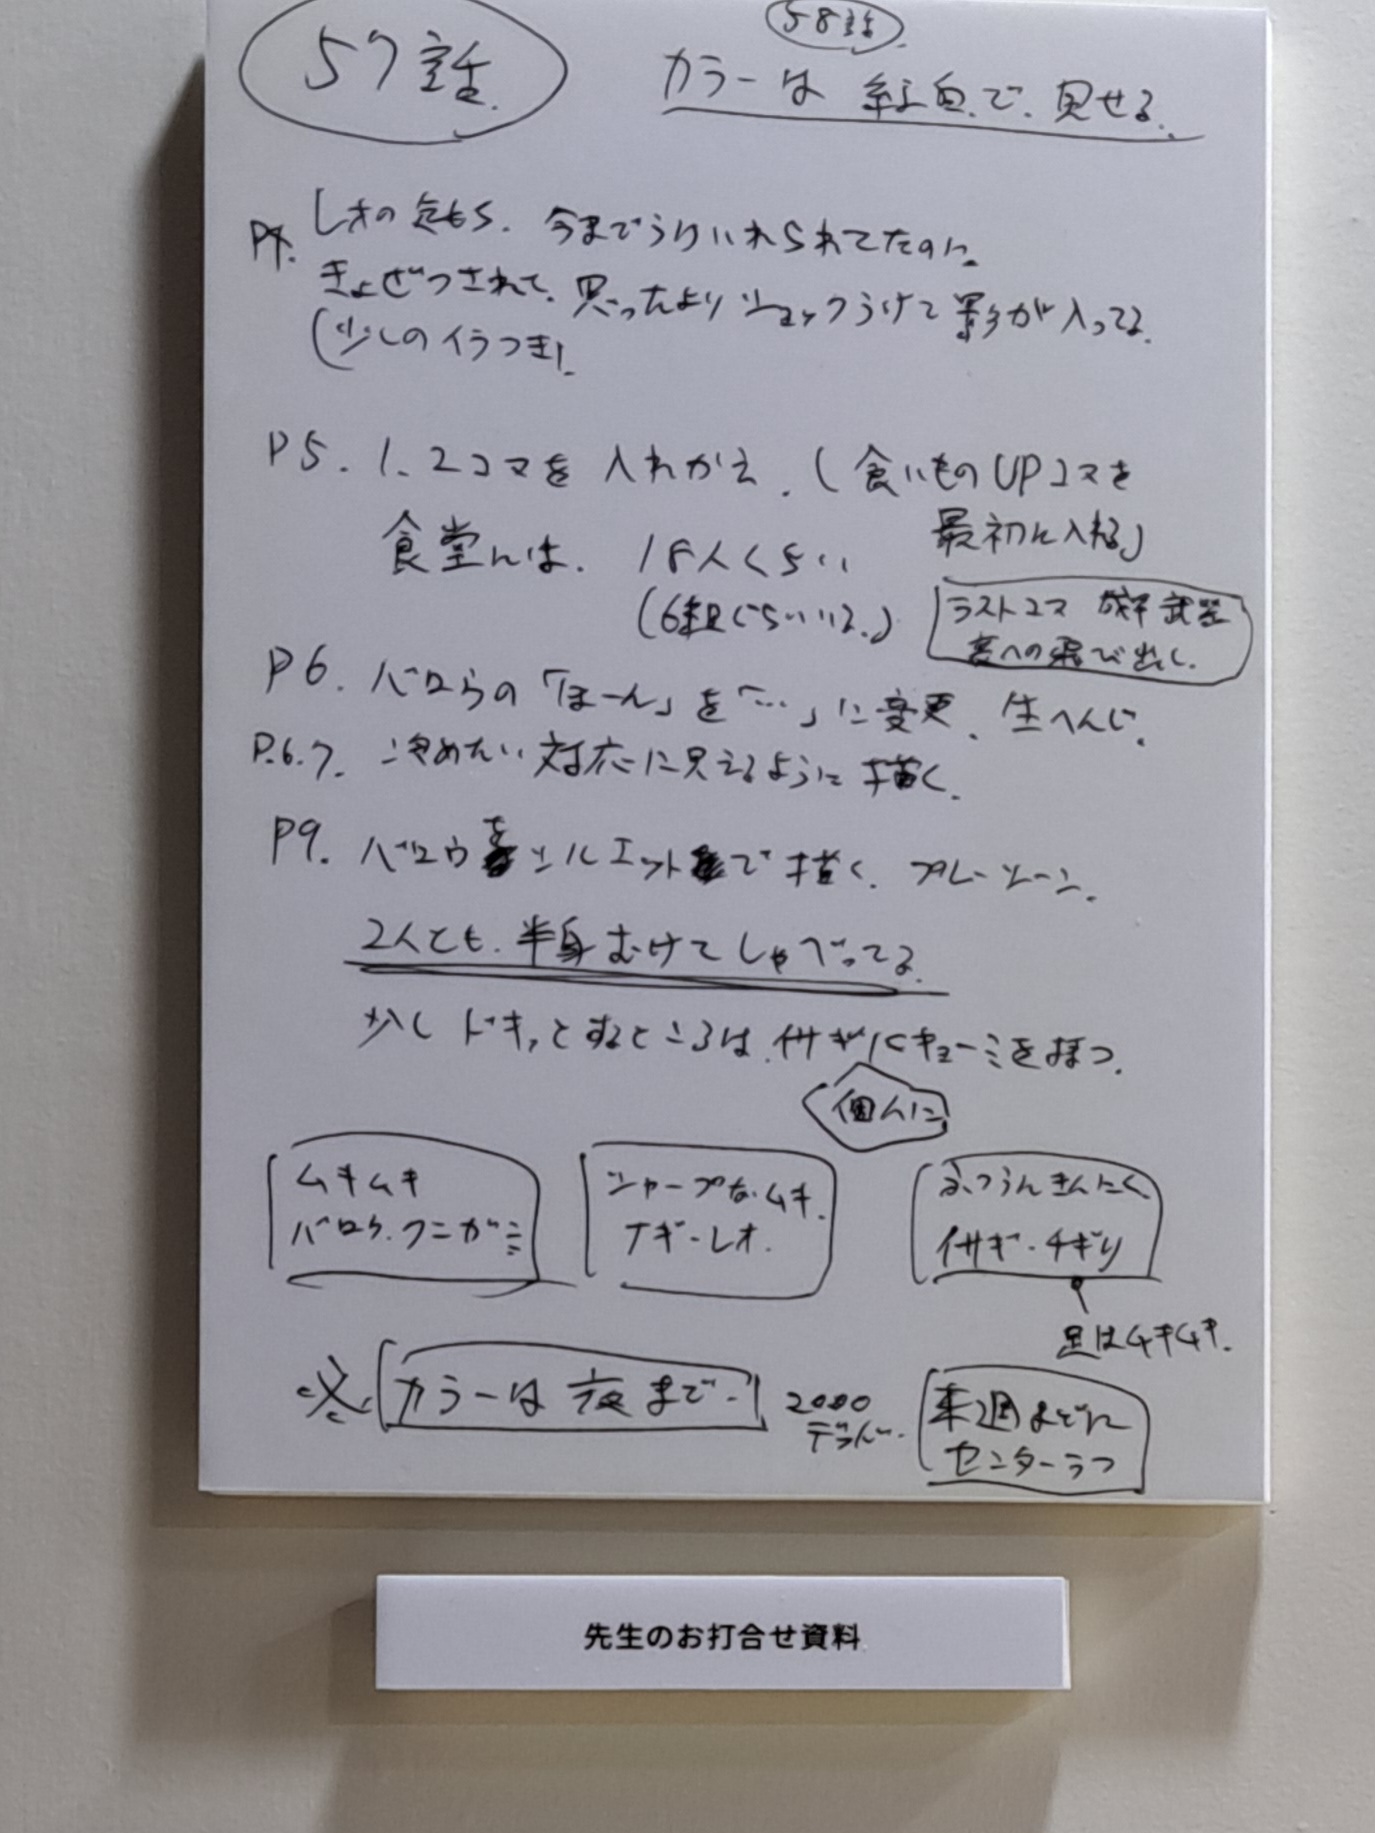 57話.
58話.
カラーは 紅白.で.見せる.
P4. レオの気もち. 今までうけいれられてたのに.
きょぜつされて. 思ったよりショックうけて影が入ってる.
(少しのイラつき).
P5. 1、2コマを 入れかえ. (食いものUPコマを
最初に入れる」
食堂には. 18人くらい
(6組ぐらいいる.)
ラストコマ 武器
への飛び出し.
P6. バロウの「ほーん」を「…」に変更. 生へんじ.
P.6.7. 冷めたい対応に見えるように描く.
P9. バロウをシルエットで描く. プレーソーン.
2人とも. 半身むけてしゃべってる.
少しドキッとするところは.イサギにキョーミを持つ.
個人に
ムキムキ
バロウ.クニガミ
シャープなムキ.
ナギ-レオ.
ふつうんきんにく
イサギ・チギリ
足はムキムキ.
※ カラーは 夜まで.
2000
デラんぐ.
来週までに
センターラフ
先生のお打合せ資料